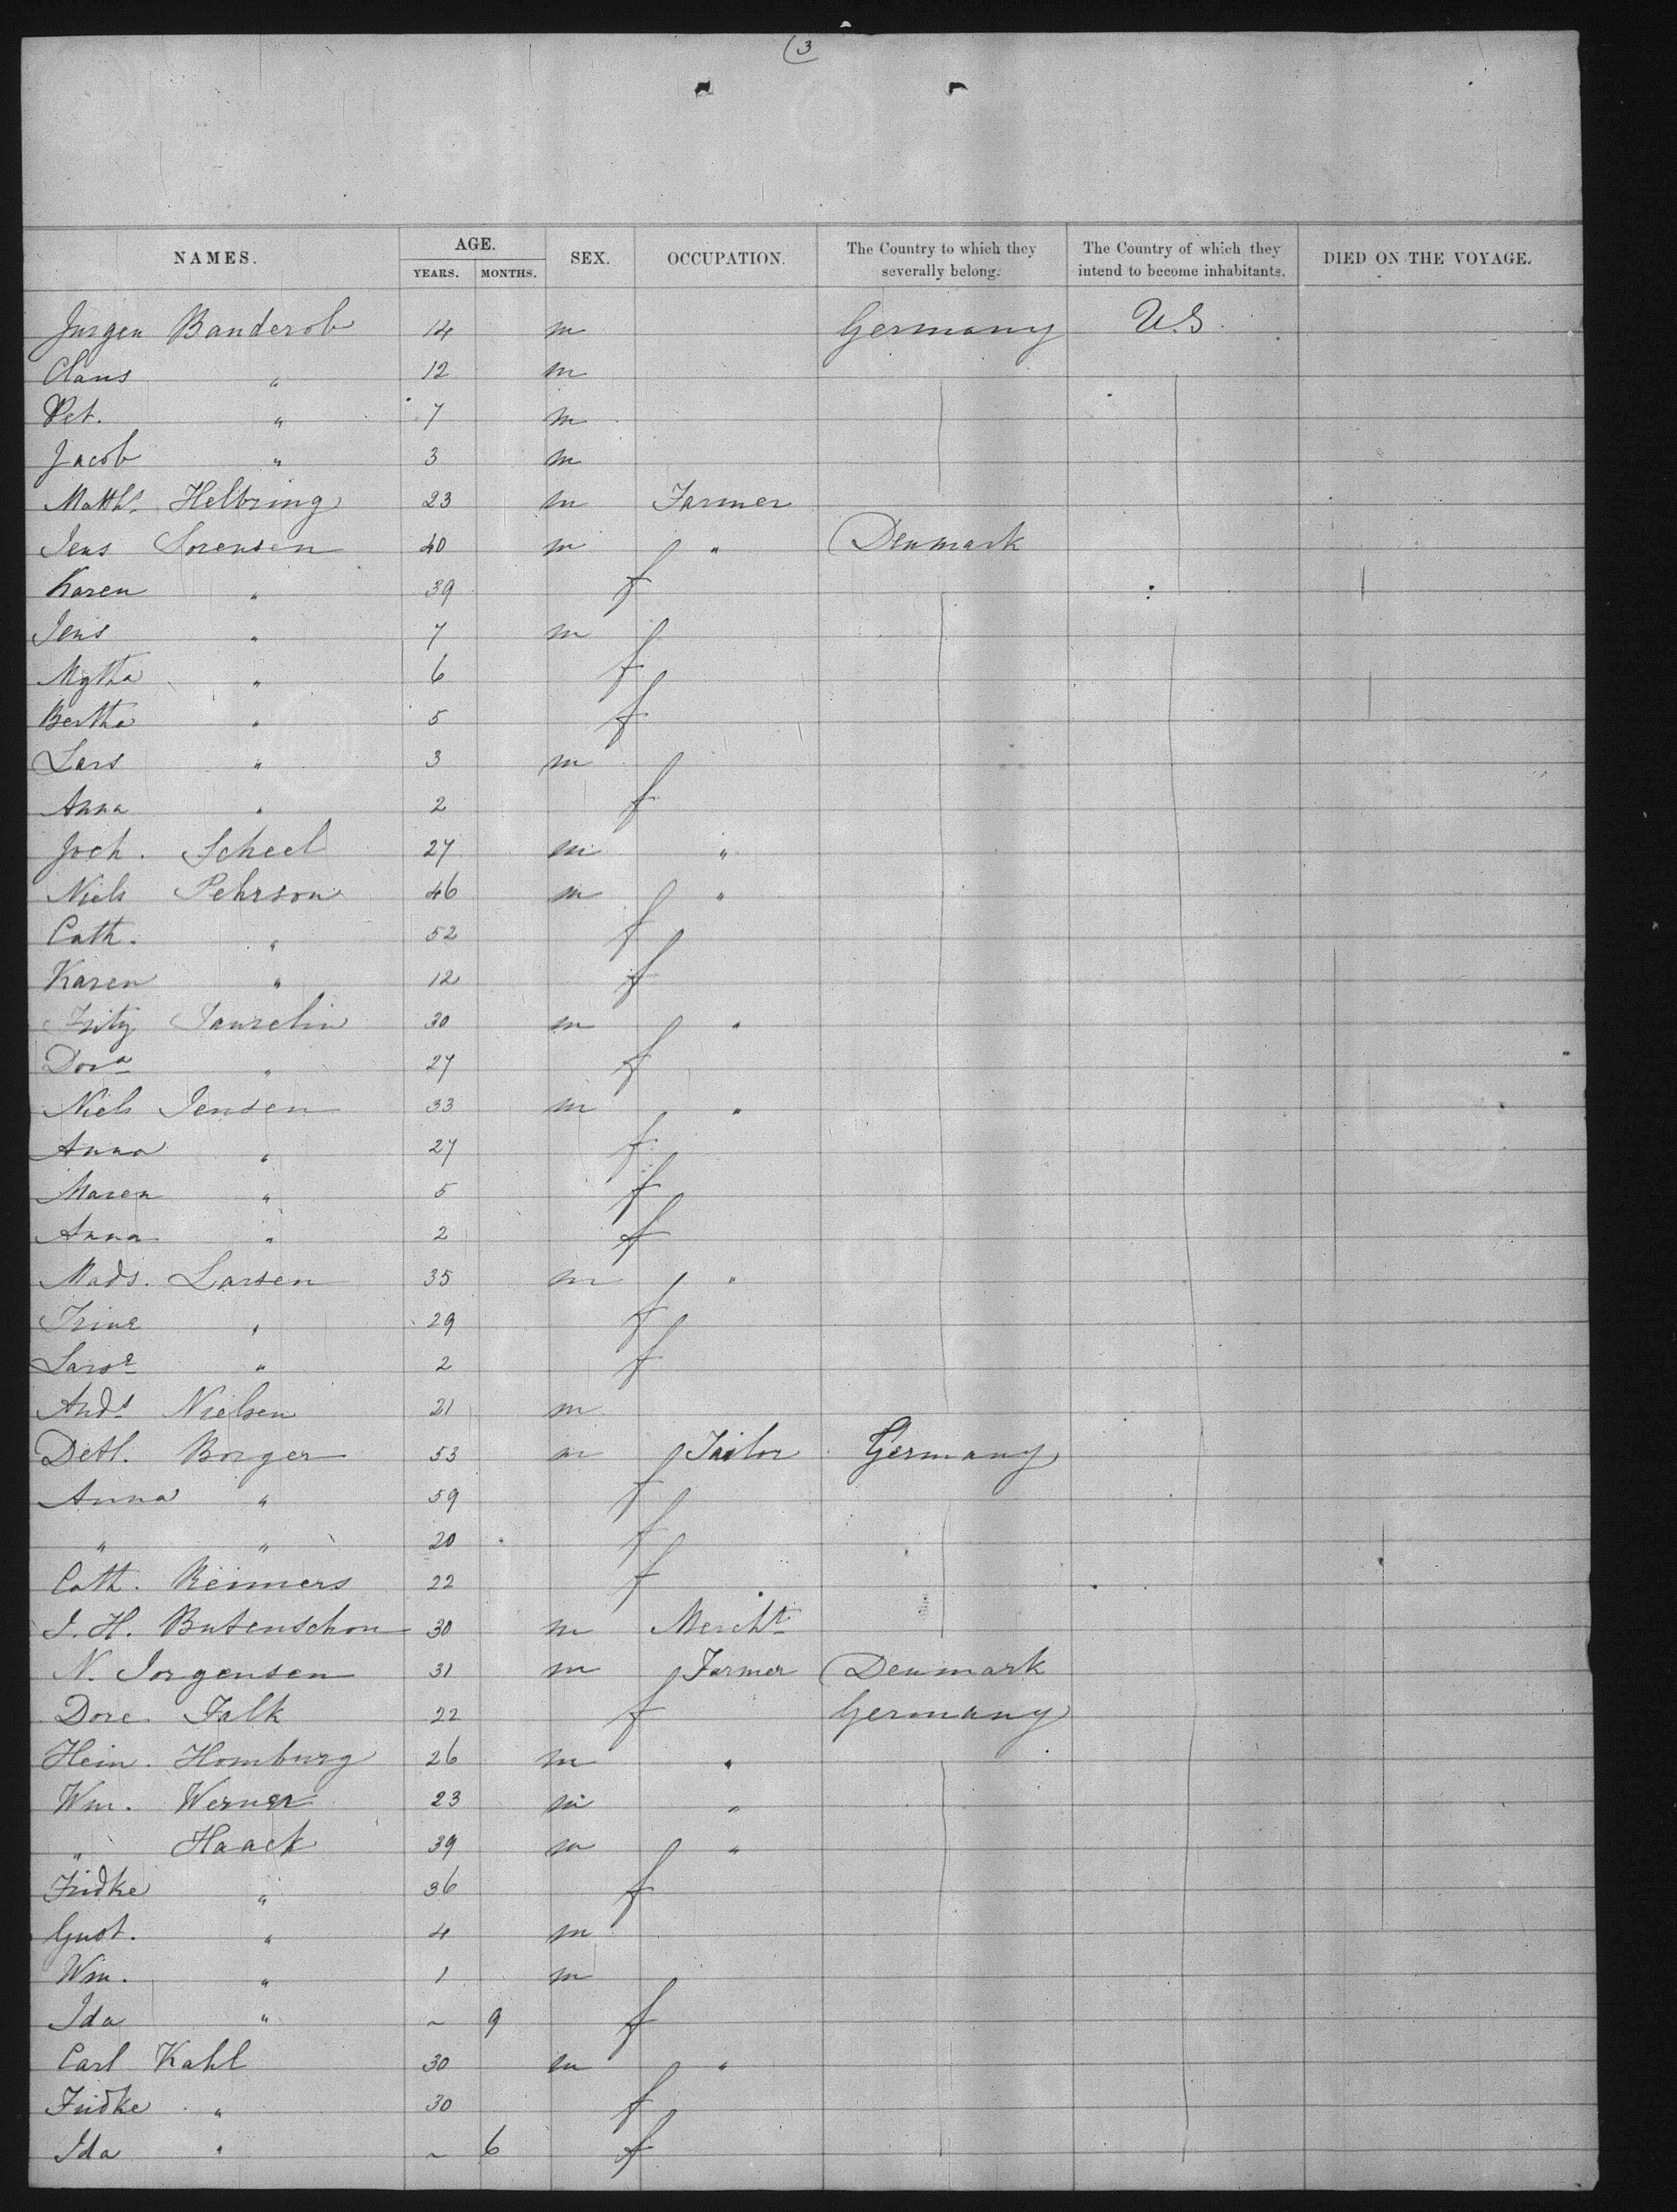 (3
NAMES. AGE. YEARS. MONTHS. SEX. OCCUPATION. The Country to which they severally belong. The Country of which they intend to become inhabitants. DIED ON THE VOYAGE.
Jurgen Banderob 14 m Germany U.S.
Claus " 12 m
Pet. " 7 m
Jacob " 3 m
Matths Helbring 23 m Farmer
Jens Sorensen 40 m " Denmark
Karen " 39 f
Jens " 7 m
Mgtha " 6 f
Bertha " 5 f
Lars " 3 m
Anna " 2 f
Joch. Scheel 27 m "
Niels Pehrson 46 m "
Cath. " 52 f
Karen " 12 f
Fritz 30 m "
Dora " 27 f
Niels Jensen 33 m "
Anna " 27 f
Maren " 5 f
Anna " 2 f
Mads. Larsen 35 m "
Trine " 29 f
Larse " 2 f
Ands Nielsen 21 m
Detl. Borger 53 m Tailor Germany
Anna " 59 f
" " 20 f
Cath. Reimers 22 f
J. H. Butenschon 30 m Mercht
N. Jorgensen 31 m Farmer Denmark
Dore. Falk 22 f Germany
Hein. Homburg 26 m "
Wm. Werner 23 m "
" Haack 39 m "
Fridke " 36 f
Gust. " 4 m
Wm. " 1 m
Ida " ~ 9 f
Carl Kahl 30 m "
Fridke " 30 f
Ida " ~ 6 f